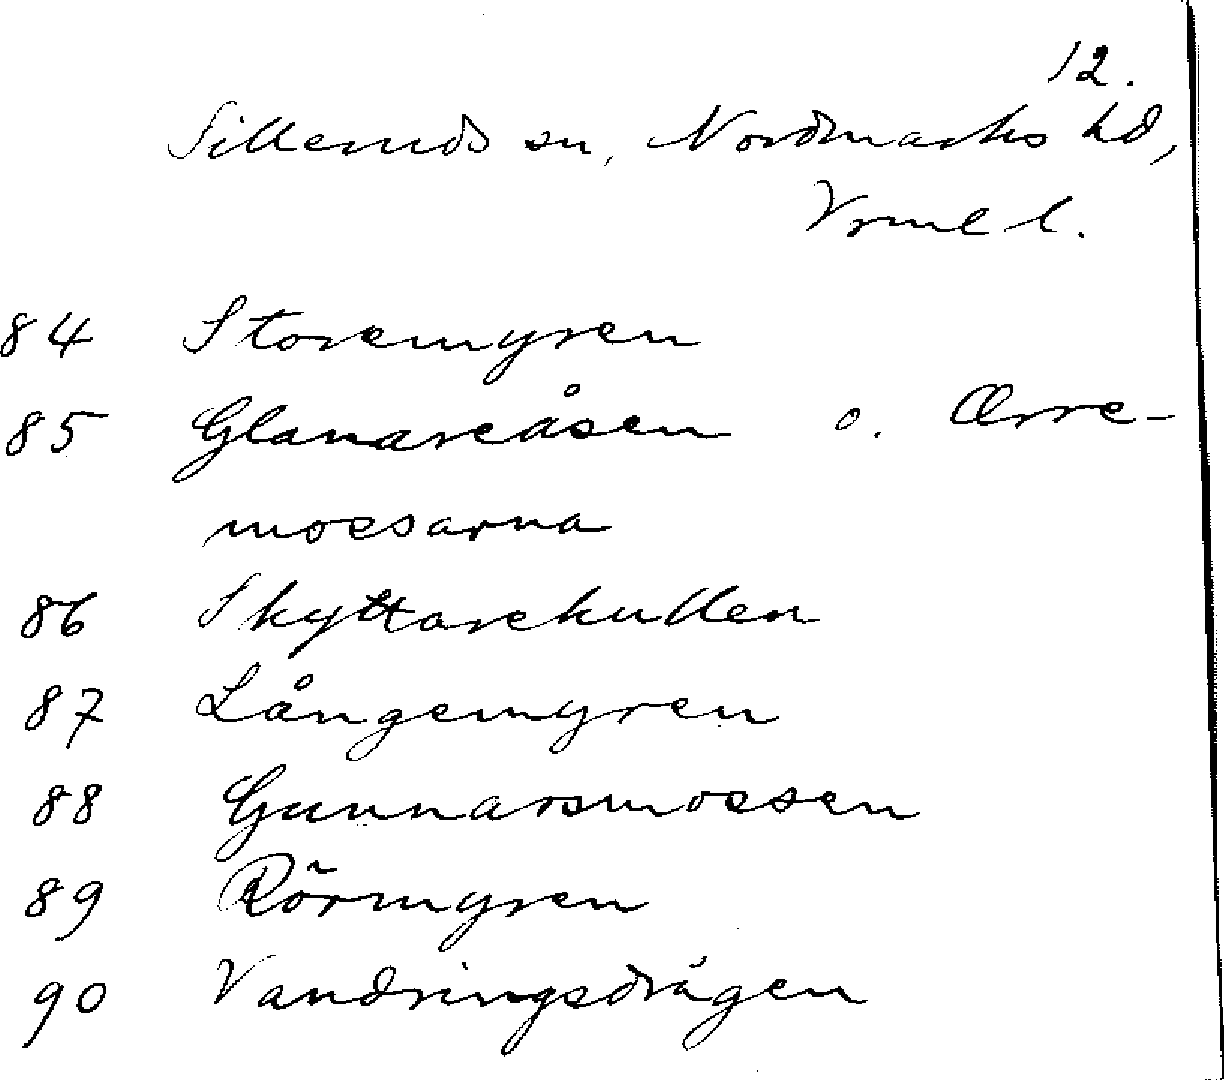 12.
Silleruds sn, Nordmarks hd,
Vrml l.
84 Storemyren
85 Glanareåsen o. Orre-
mossarna
86 Skyttarekullen
87 Långemyren
88 Gunnarsmossen
89 Rörmyren
90 Vandringsdrågen